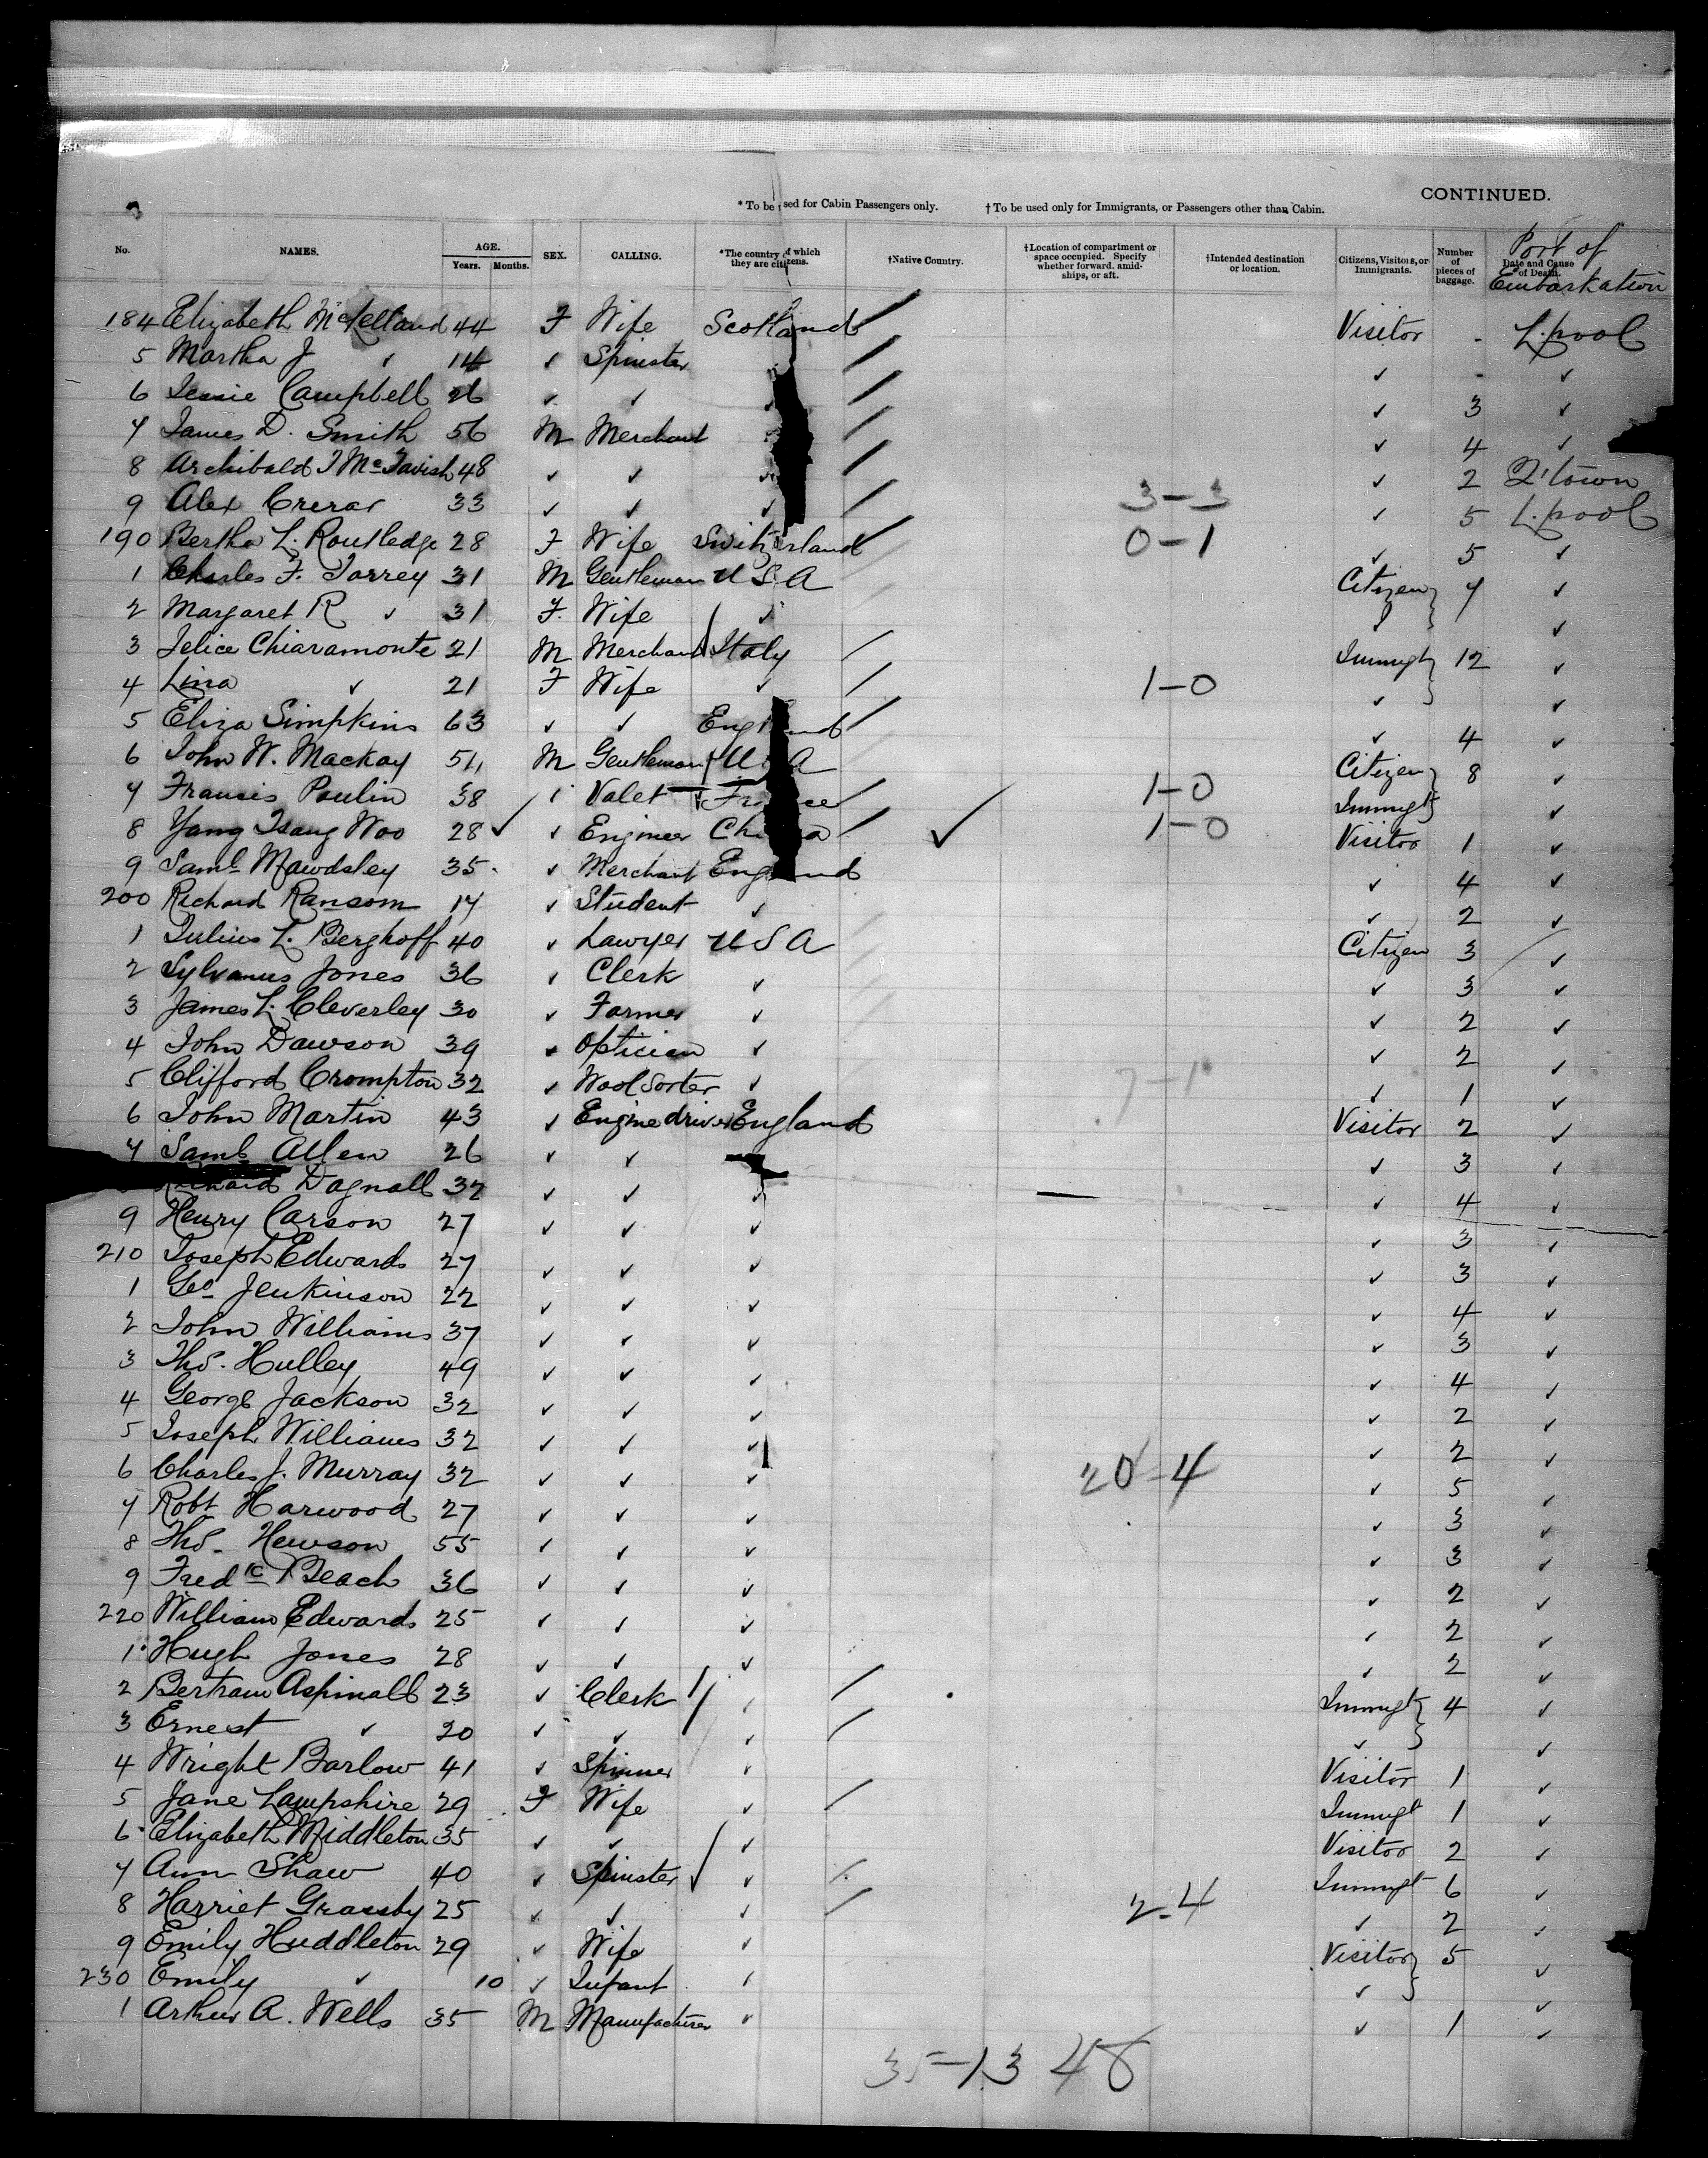 CONTINUED.
* To be used for Cabin Passengers only. † To be used only for Immigrants, or Passengers other than Cabin.
No. NAMES. AGE. Years. Months. SEX. CALLING. *The country of which they are citizens. †Native Country. †Location of compartment or space occupied. Specify whether forward, amidships, or aft. †Intended destination or location. Citizens, Visitors, or Immigrants. Number of pieces of baggage. Date and Cause of Death. Port of Embarkation
184 Elizabeth McKelland 44 F Wife Scotland Visitor - L.pool
5 Martha J ✓ 14 ✓ Spinster ✓ - ✓
6 Jessie Campbell 26 ✓ ✓ ✓ ✓ 3 ✓
7 James D. Smith 56 M Merchant ✓ 4 ✓
8 Archibald J McTavish 48 ✓ ✓ ✓ ✓ 2 Q'town
9 Alex Crerar 33 ✓ ✓ ✓ 3-3 ✓ 5 L.pool
190 Bertha L. Routledge 28 F Wife Switzerland 0-1 ✓ 5 ✓
1 Charles F. Torrey 31 M Gentleman U S A Citizen 7 ✓
2 Margaret R ✓ 31 F. Wife ✓ ✓ ✓
3 Felice Chiaramonte 21 M Merchant Italy Immigt 12 ✓
4 Lina ✓ 21 F Wife ✓ 1-0 ✓ ✓
5 Eliza Simpkins 63 ✓ ✓ England ✓ 4 ✓
6 John W. Mackay 51 M Gentleman U S A Citizen 8 ✓
7 Francis Poulin 38 ✓ Valet France 1-0 Immigt ✓
8 Yang Tsang Woo 28 ✓ ✓ Engineer China ✓ 1-0 Visitor 1 ✓
9 Saml Mawdsley 35 ✓ Merchant England ✓ 4 ✓
200 Richard Ransom 17 ✓ Student ✓ ✓ 2 ✓
1 Julius L. Berghoff 40 ✓ Lawyer U S A Citizen 3 ✓
2 Sylvanus Jones 36 ✓ Clerk ✓ ✓ 3 ✓
3 James L. Cleverley 30 ✓ Farmer ✓ ✓ 2 ✓
4 John Dawson 39 ✓ Optician ✓ ✓ 2 ✓
5 Clifford Crompton 32 ✓ Wool Sorter ✓ 7-1 ✓ 1 ✓
6 John Martin 43 ✓ Engine driver England Visitor 2 ✓
7 Saml Allen 26 ✓ ✓ ✓ 3 ✓
Richard Dagnall 32 ✓ ✓ ✓ ✓ 4 ✓
9 Henry Carson 27 ✓ ✓ ✓ ✓ 3 ✓
210 Joseph Edwards 27 ✓ ✓ ✓ ✓ 3 ✓
1 Geo Jenkinson 22 ✓ ✓ ✓ ✓ 4 ✓
2 John Williams 37 ✓ ✓ ✓ ✓ 3 ✓
3 Thos. Hulley 49 ✓ ✓ ✓ ✓ 4 ✓
4 George Jackson 32 ✓ ✓ ✓ ✓ 2 ✓
5 Joseph Williams 32 ✓ ✓ ✓ ✓ 2 ✓
6 Charles J. Murray 32 ✓ ✓ ✓ 20-4 ✓ 5 ✓
7 Robt Harwood 27 ✓ ✓ ✓ ✓ 3 ✓
8 Thos. Hewson 55 ✓ ✓ ✓ ✓ 3 ✓
9 Fredic Beach 36 ✓ ✓ ✓ ✓ 2 ✓
220 William Edwards 25 ✓ ✓ ✓ ✓ 2 ✓
1 Hugh Jones 28 ✓ ✓ ✓ ✓ 2 ✓
2 Bertram Aspinall 23 ✓ Clerk ✓ Immigt 4 ✓
3 Ernest ✓ 20 ✓ ✓ ✓ ✓ ✓
4 Wright Barlow 41 ✓ Spinner ✓ Visitor 1 ✓
5 Jane Lampshire 29 F Wife ✓ Immigt 1 ✓
6 Elizabeth Middleton 35 ✓ ✓ ✓ Visitor 2 ✓
7 Ann Shaw 40 ✓ Spinster ✓ Immigt 6 ✓
8 Harriet Grassby 25 ✓ ✓ ✓ 2-4 ✓ 2 ✓
9 Emily Huddleton 29 ✓ Wife ✓ Visitor 5 ✓
230 Emily ✓ 10 ✓ Infant ✓ ✓ ✓
1 Arthur A. Wells 35 M Manufacturer ✓ ✓ 1 ✓
35-13 48